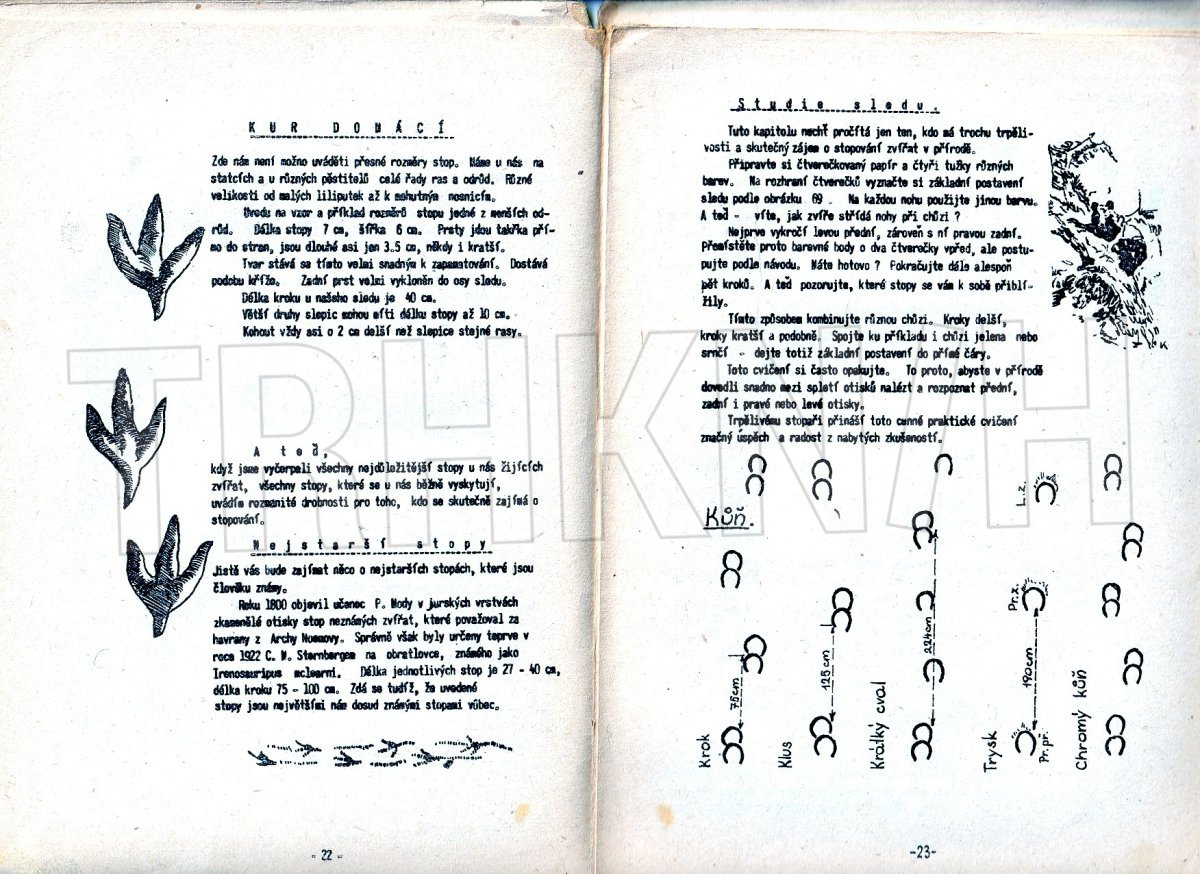 KUR DOMÁCÍ
Zde nám není možno uváděti přesné rozměry stop. Máme u nás na
statcích a u různých pěstitelů celé řady ras a odrůd. Různé
velikosti od malých liliputek až k mohutným nosnicím.
Úvodu na vzor a příklad rozměrů stopu jedné z menších od-
růd. Délka stopy 7 cm, šířka 6 cm. Prsty jdou takřka pří-
mo do stran, jsou dlouhé asi jen 3.5 cm, někdy i kratší.
Tvar stává se tímto velmi snadným k zapamatování. Dostává
podobu kříže. Zadní prst velmi vykloněn do osy sledu.
Délka kroku u našeho sledu je 40 cm.
Větší druhy slepic mohou míti délku stopy až 10 cm.
Kohout vždy asi o 2 cm delší než slepice stejné rasy.
A teď,
když jsme vyčerpali všechny nejdůležitější stopy u nás žijících
zvířat, všechny stopy, které se u nás běžně vyskytují,
uvádím rozmanité drobnosti pro toho, kdo se skutečně zajímá o
stopování.
Nejstarší stopy
Jistě vás bude zajímat něco o nejstarších stopách, které jsou
člověku známy.
Roku 1800 objevil učenec P. Mody v jurských vrstvách
zkamenělé otisky stop neznámých zvířat, které považoval za
havrany z Archy Noemovy. Správně však byly určeny teprve v
roce 1922 C. M. Sternbergem na obratlovce, známého jako
Irenosauripus mclearni. Délka jednotlivých stop je 27 - 40 cm,
délka kroku 75 - 100 cm. Zdá se tudíž, že uvedené
stopy jsou největšími nám dosud známými stopami vůbec.
- 22 -
Studie sledu.
Tuto kapitolu nechť pročítá jen ten, kdo má trochu trpěli-
vosti a skutečný zájem o stopování zvířat v přírodě.
Připravte si čtverečkovaný papír a čtyři tužky různých
barev. Na rozhraní čtverečků vyznačte si základní postavení
sledu podle obrázku 69. Na každou nohu použijte jinou barvu.
A teď - víte, jak zvíře střídá nohy při chůzi ?
Nejprve vykročí levou přední, zároveň s ní pravou zadní.
Přemístěte proto barevné body o dva čtverečky vpřed, ale postu-
pujte podle návodu. Máte hotovo ? Pokračujte dále alespoň
pět kroků. A teď pozorujte, které stopy se vám k sobě přiblí-
žily.
Tímto způsobem kombinujte různou chůzi. Kroky delší,
kroky kratší a podobně. Spojte ku příkladu i chůzi jelena nebo
srnčí - dejte totiž základní postavení do přímé čáry.
Toto cvičení si často opakujte. To proto, abyste v přírodě
dovedli snadno mezi spletí otisků nalézt a rozpoznat přední,
zadní i pravé nebo levé otisky.
Trpělivému stopaři přináší toto cenné praktické cvičení
značný úspěch a radost z nabytých zkušeností.
Kůň.
Krok
75cm
Klus
125cm
Krátký cval
224cm
Trysk
Pr.př.
190cm
Pr.z.
L.z.
Chromý kůň
-23-
TRHKNIH